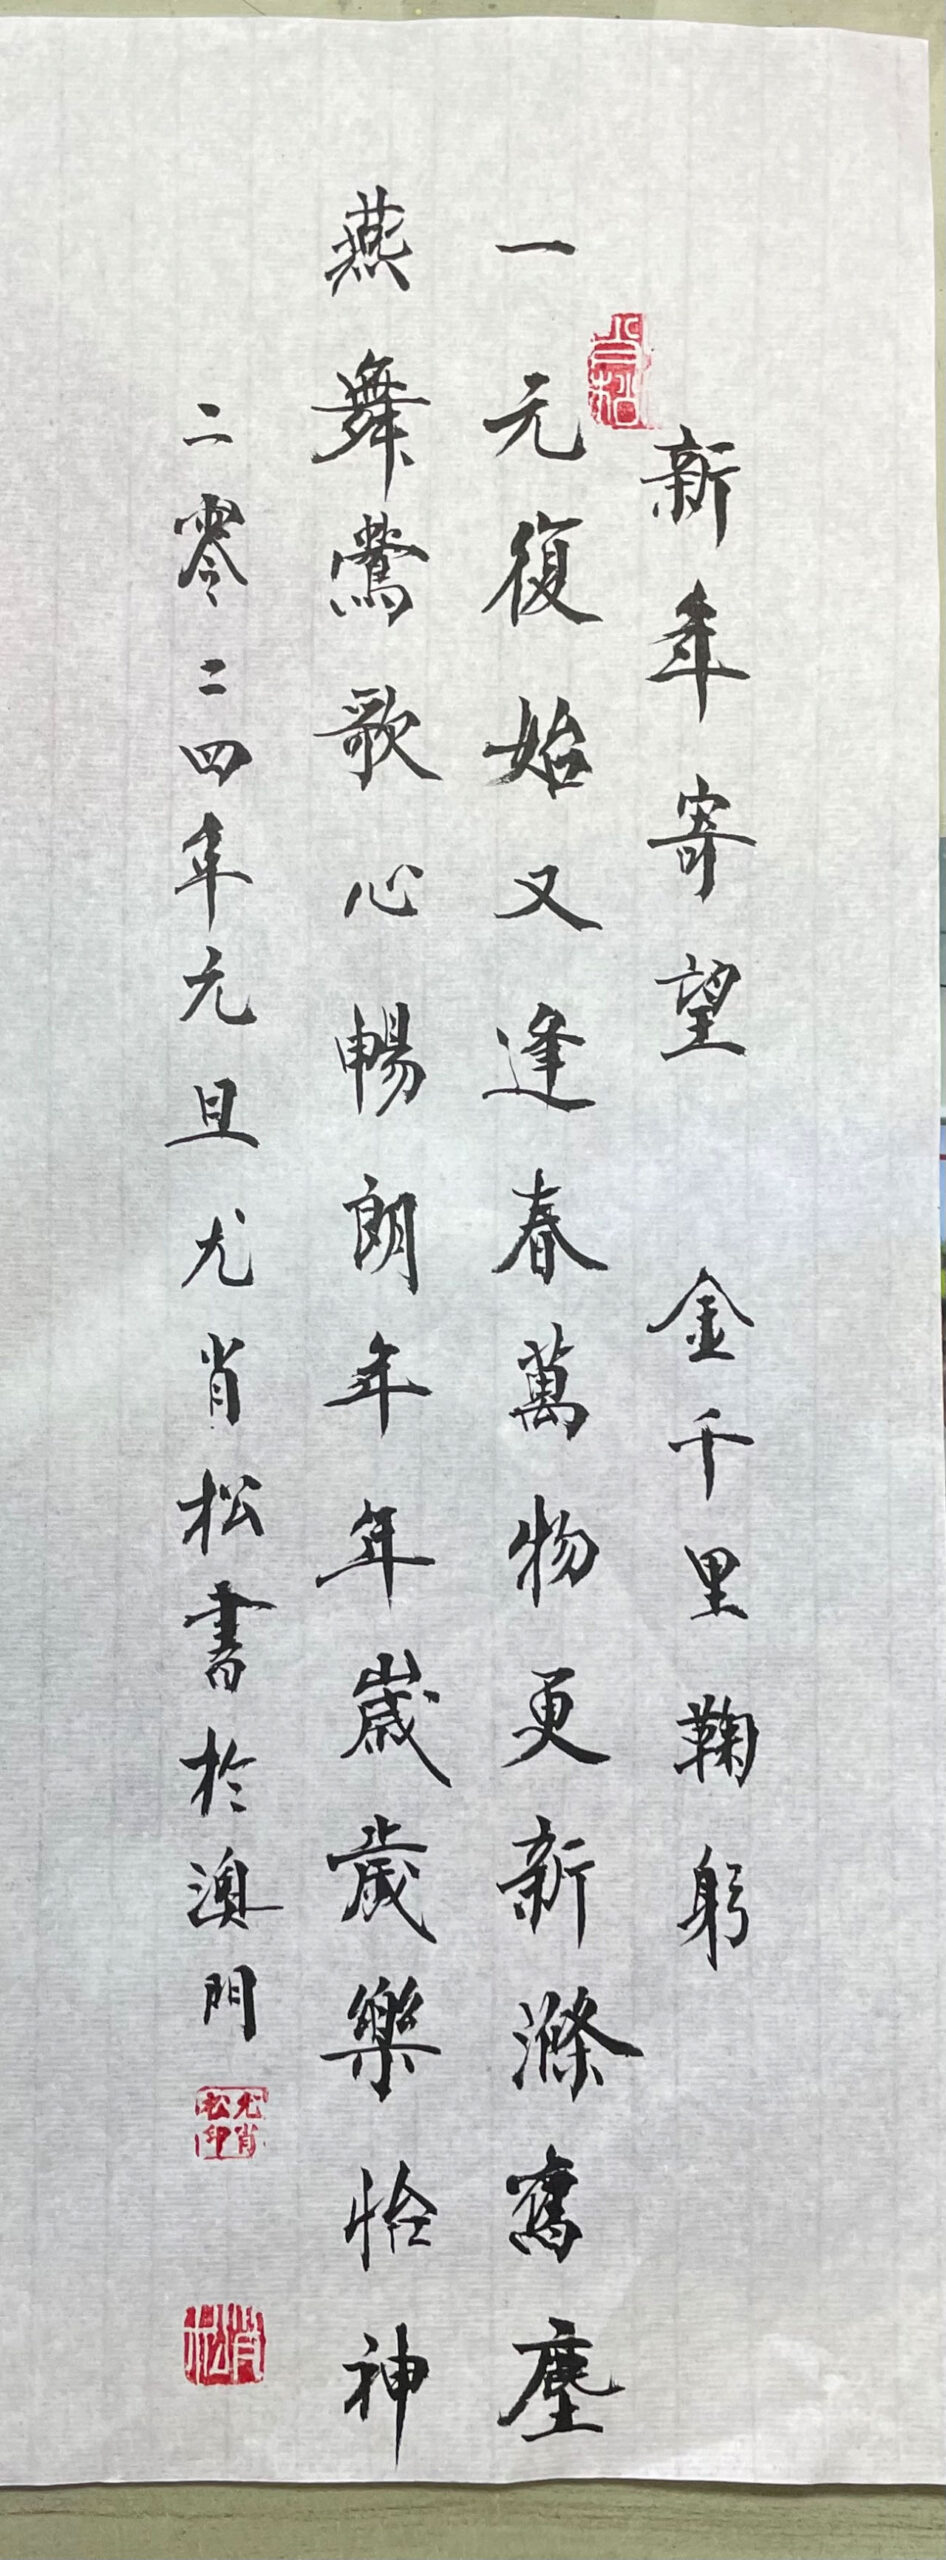 新年寄望 金千里鞠躬
一元復始又逢春萬物更新滌舊塵
燕舞鶯歌心暢朗年年歲歲樂怡神
二零二四年元旦尤肖松書於澳門
肖松
尤肖松印
肖松